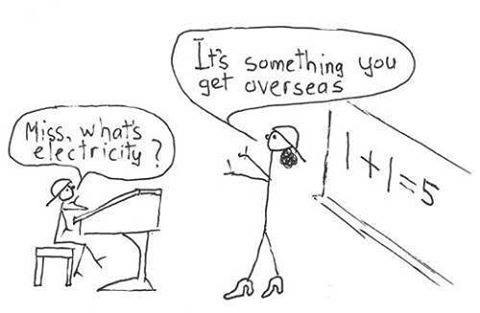 Miss, what's
electricity?
It's something you
get overseas
1+1=5